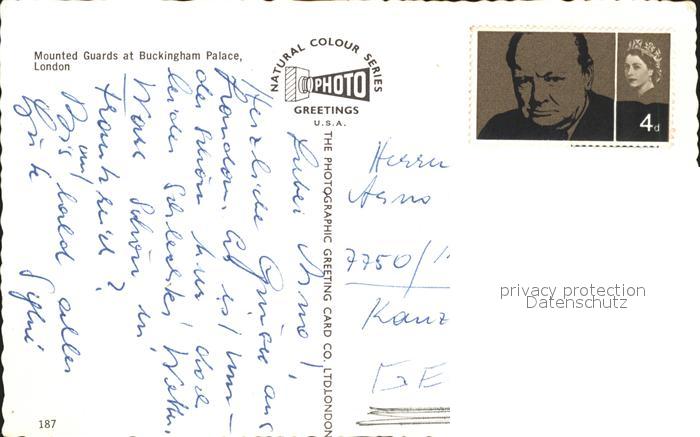 Mounted Guards at Buckingham Palace,
London
NATURAL COLOUR SERIES
PHOTO
GREETINGS
U.S.A.
THE PHOTOGRAPHIC GREETING CARD CO. LTD, LONDON
4d
Lieber Arno!
Herzliche Grüsse aus
London. Es ist
schön hier, doch
leider schlechtes Wetter.
Warst schon in
Frankreich?
Bis bald alles
Gute
Herrn
Arno
7750/
privacy protection
Datenschutz
187